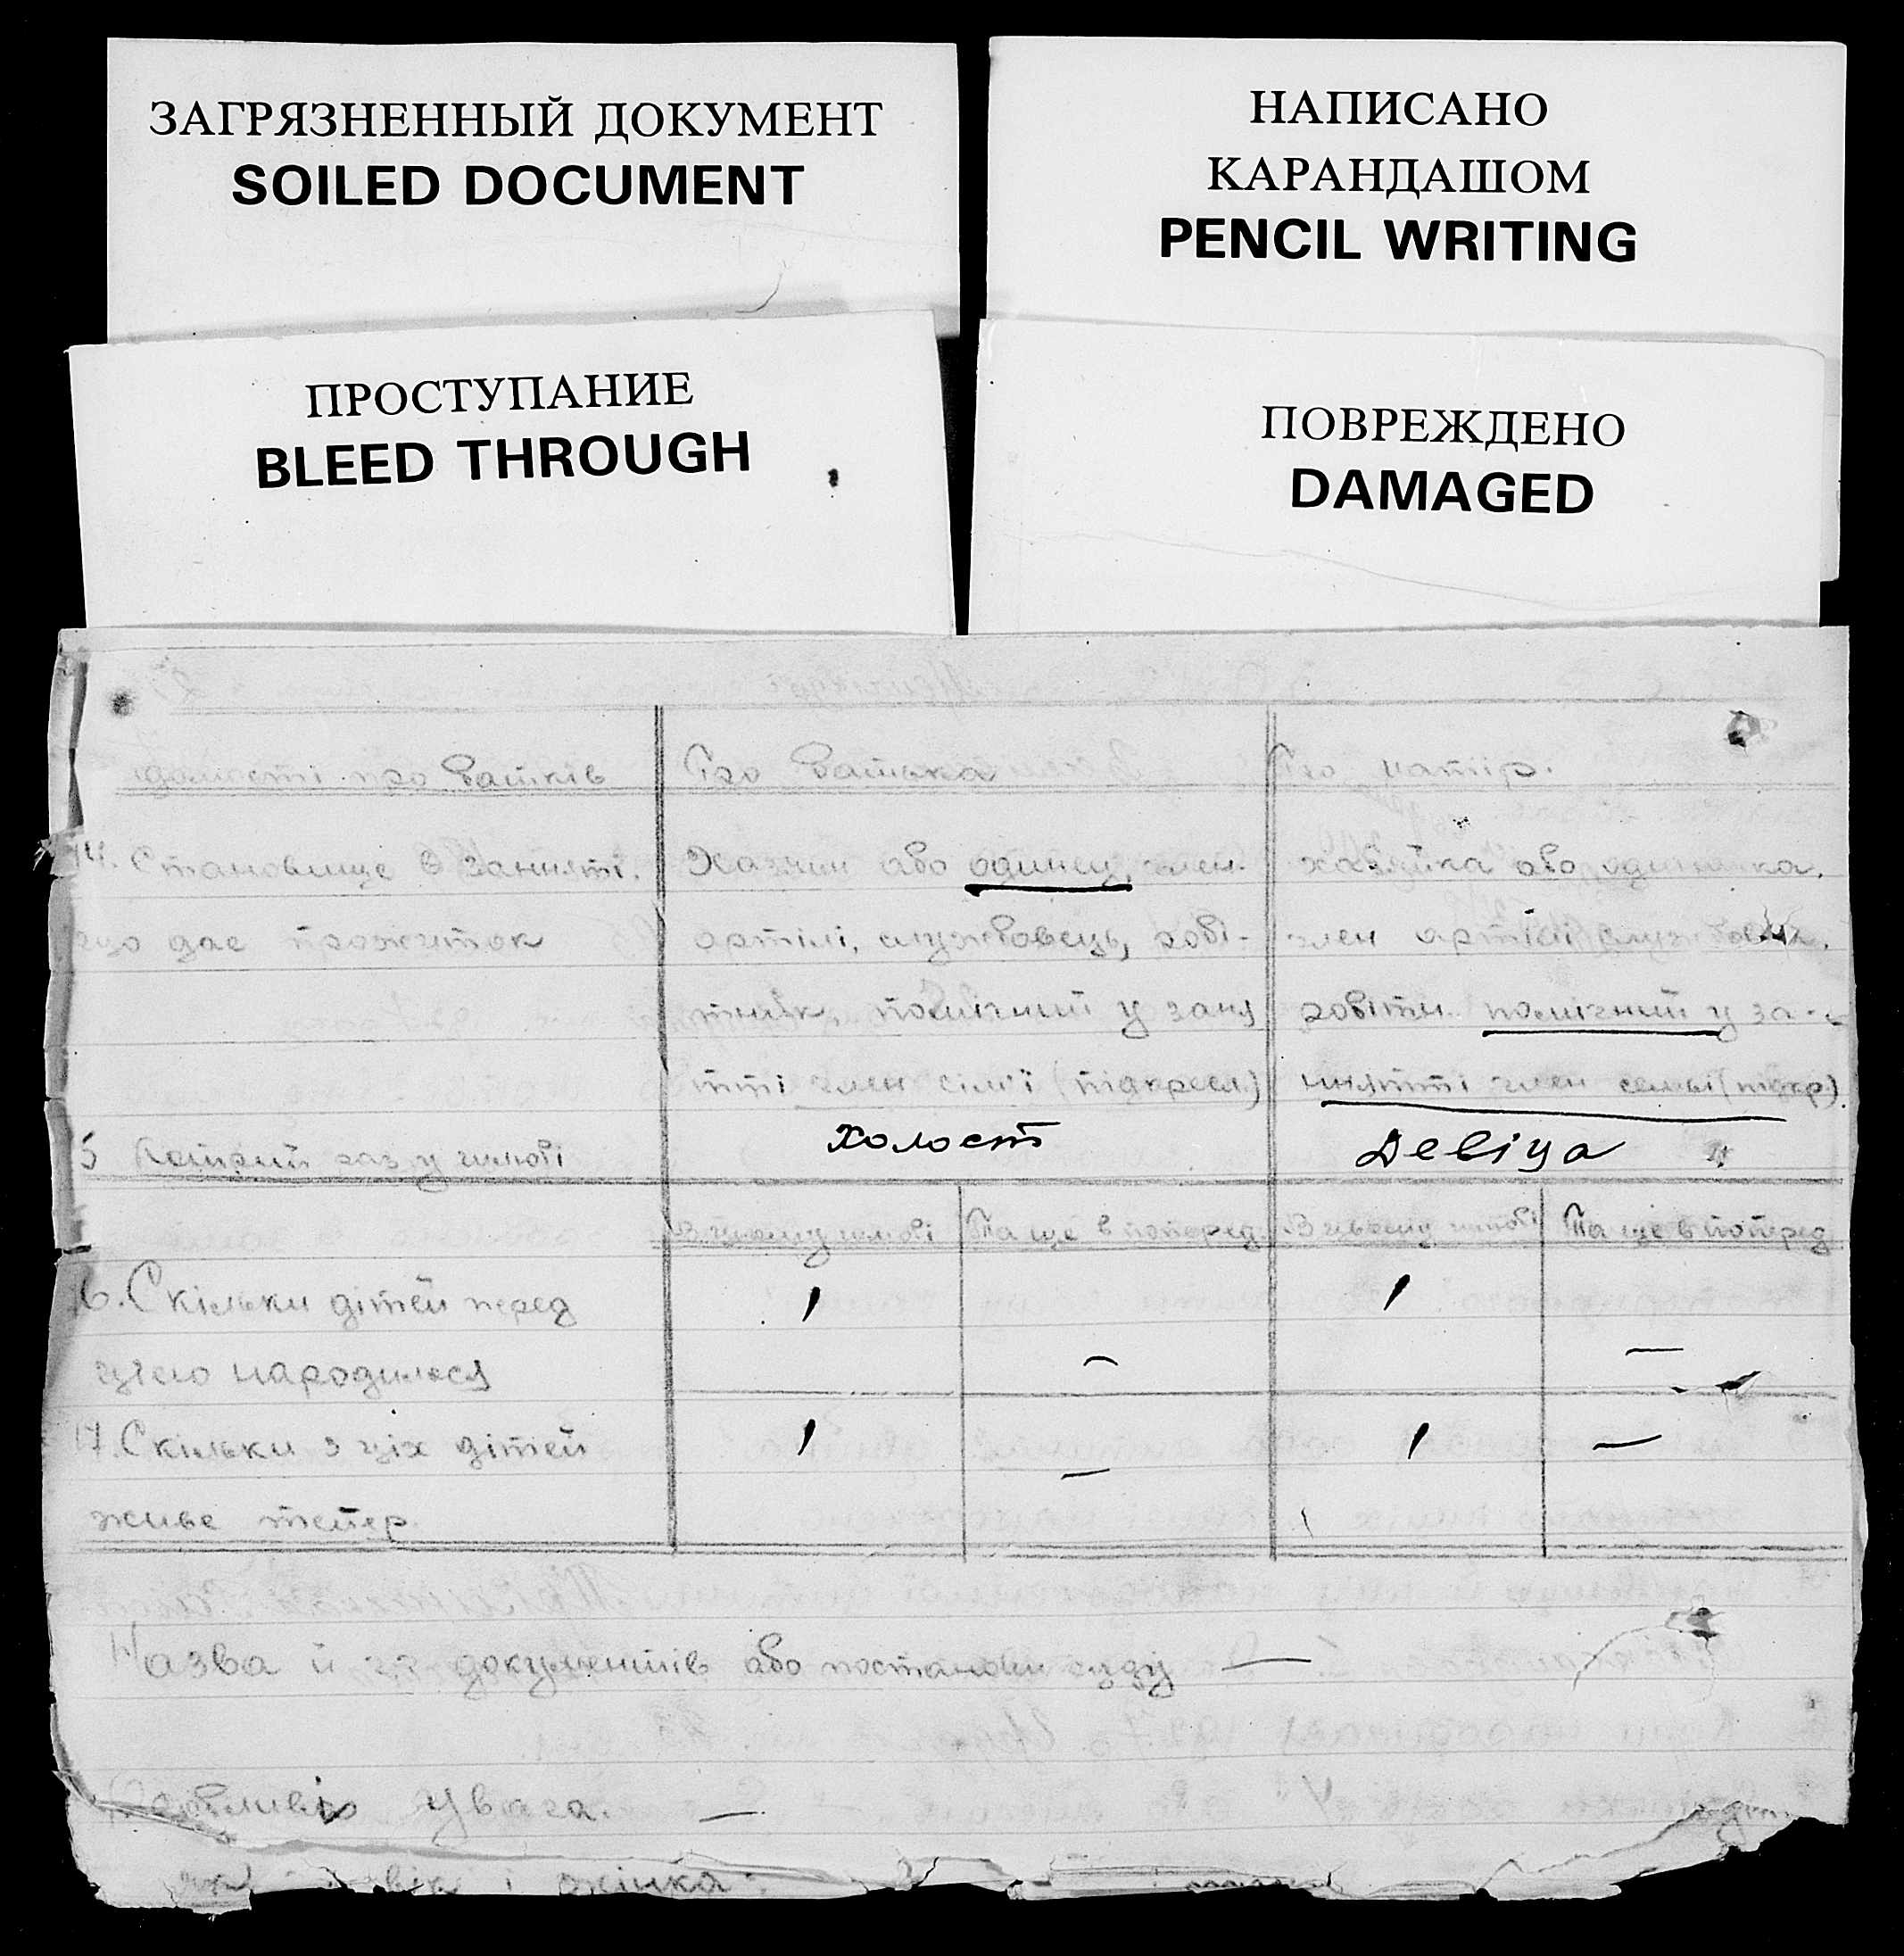 ЗАГРЯЗНЕННЫЙ ДОКУМЕНТ
SOILED DOCUMENT
НАПИСАНО
КАРАНДАШОМ
PENCIL WRITING
ПРОСТУПАНИЕ
BLEED THROUGH
ПОВРЕЖДЕНО
DAMAGED
про батьків
Про батька
Про матір.
14. Становище в занятті,
що дає прожиток
або одинец, член
артілі, службовець, робі-
тник, помічний у заня
тті член сім'ї (підкресл)
хазяйка або одиначка,
член артілі
робітн. помічний у за-
нятті член семьї (підкр).
5 Котрий раз у шлюбі
холост
Девіца
В цьому шлюбі
Та ще в поперед
В цьому шлюбі
Та ще в поперед
6. Скільки дітей перед
1
1
цією народилося
—
—
17. Скільки з ціх дітей
1
—
1
—
живе тепер.
Назва й документів або постанови суду —
Особливі увага. —
і жінка